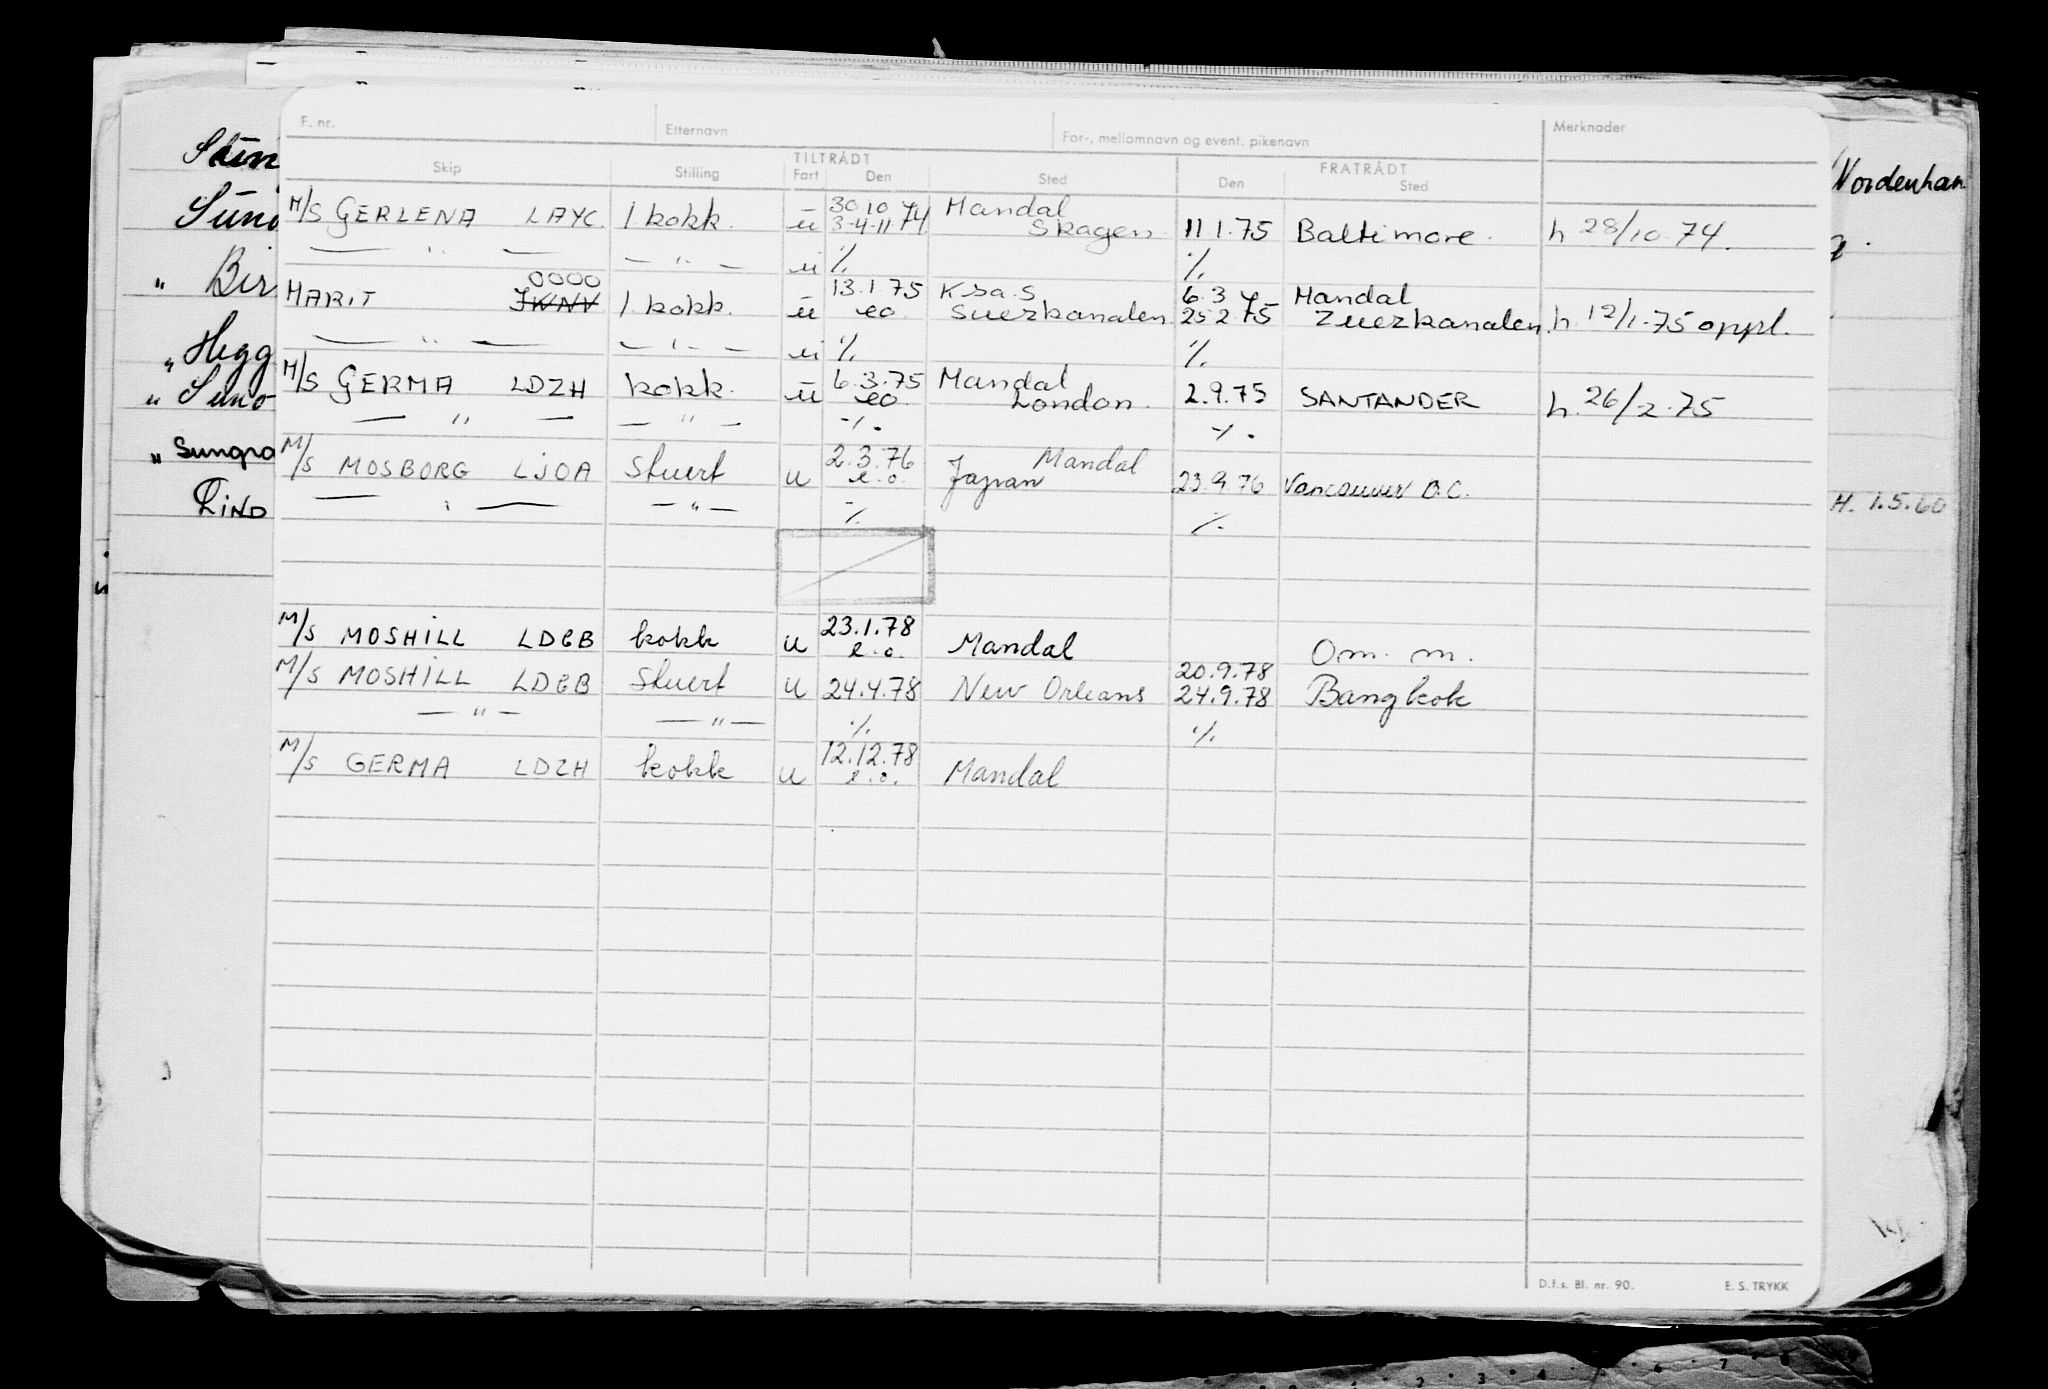 F. nr. Etternavn For-, mellomnavn og event. pikenavn Merknader
TILTRÅDT FRATRÅDT
Skip Stilling Fart Den Sted Den Sted
30 10 74 Mandal
M/S GERLENA LAYC. 1. kokk. u 3-4-11 74 Skagen. 11 1.75 Baltimore. h 28/10.74.
— " — — " — u ./. ./.
0000 13.1 75 K.sa.S 6.3 75 Mandal
MARIT JWNV 1. kokk. u eo. Suezkanalen 25 2 75 Zuezkanalen. h. 12/1.75 oppl.
— " — — " — u ./. ./.
6.3.75 Mandal
M/S GERMA LDZH kokk. u eo. London. 2.9.75 SANTANDER h. 26/2.75
— " — — " — ./. ./.
2.3.76 Mandal
M/S MOSBORG LJOA Stuert u e.o. Japan 23.9.76 Vancouver B.C.
— " — — " — ./. ./.
23.1.78
M/S MOSHILL LDGB kokk u e.o. Mandal Om. m.
20.9.78
M/S MOSHILL LDGB Stuert u 24.4.78 New Orleans 24.9.78 Bangkok
— " — — " — ./. ./.
12.12.78
M/S GERMA LDZH kokk u e.o. Mandal
D.f.s. Bl. nr. 90. E. S. TRYKK
Sun
" Bir
" Hegg
" Suno
" Sungra
RIND
Nordenham
H. 1.5.60